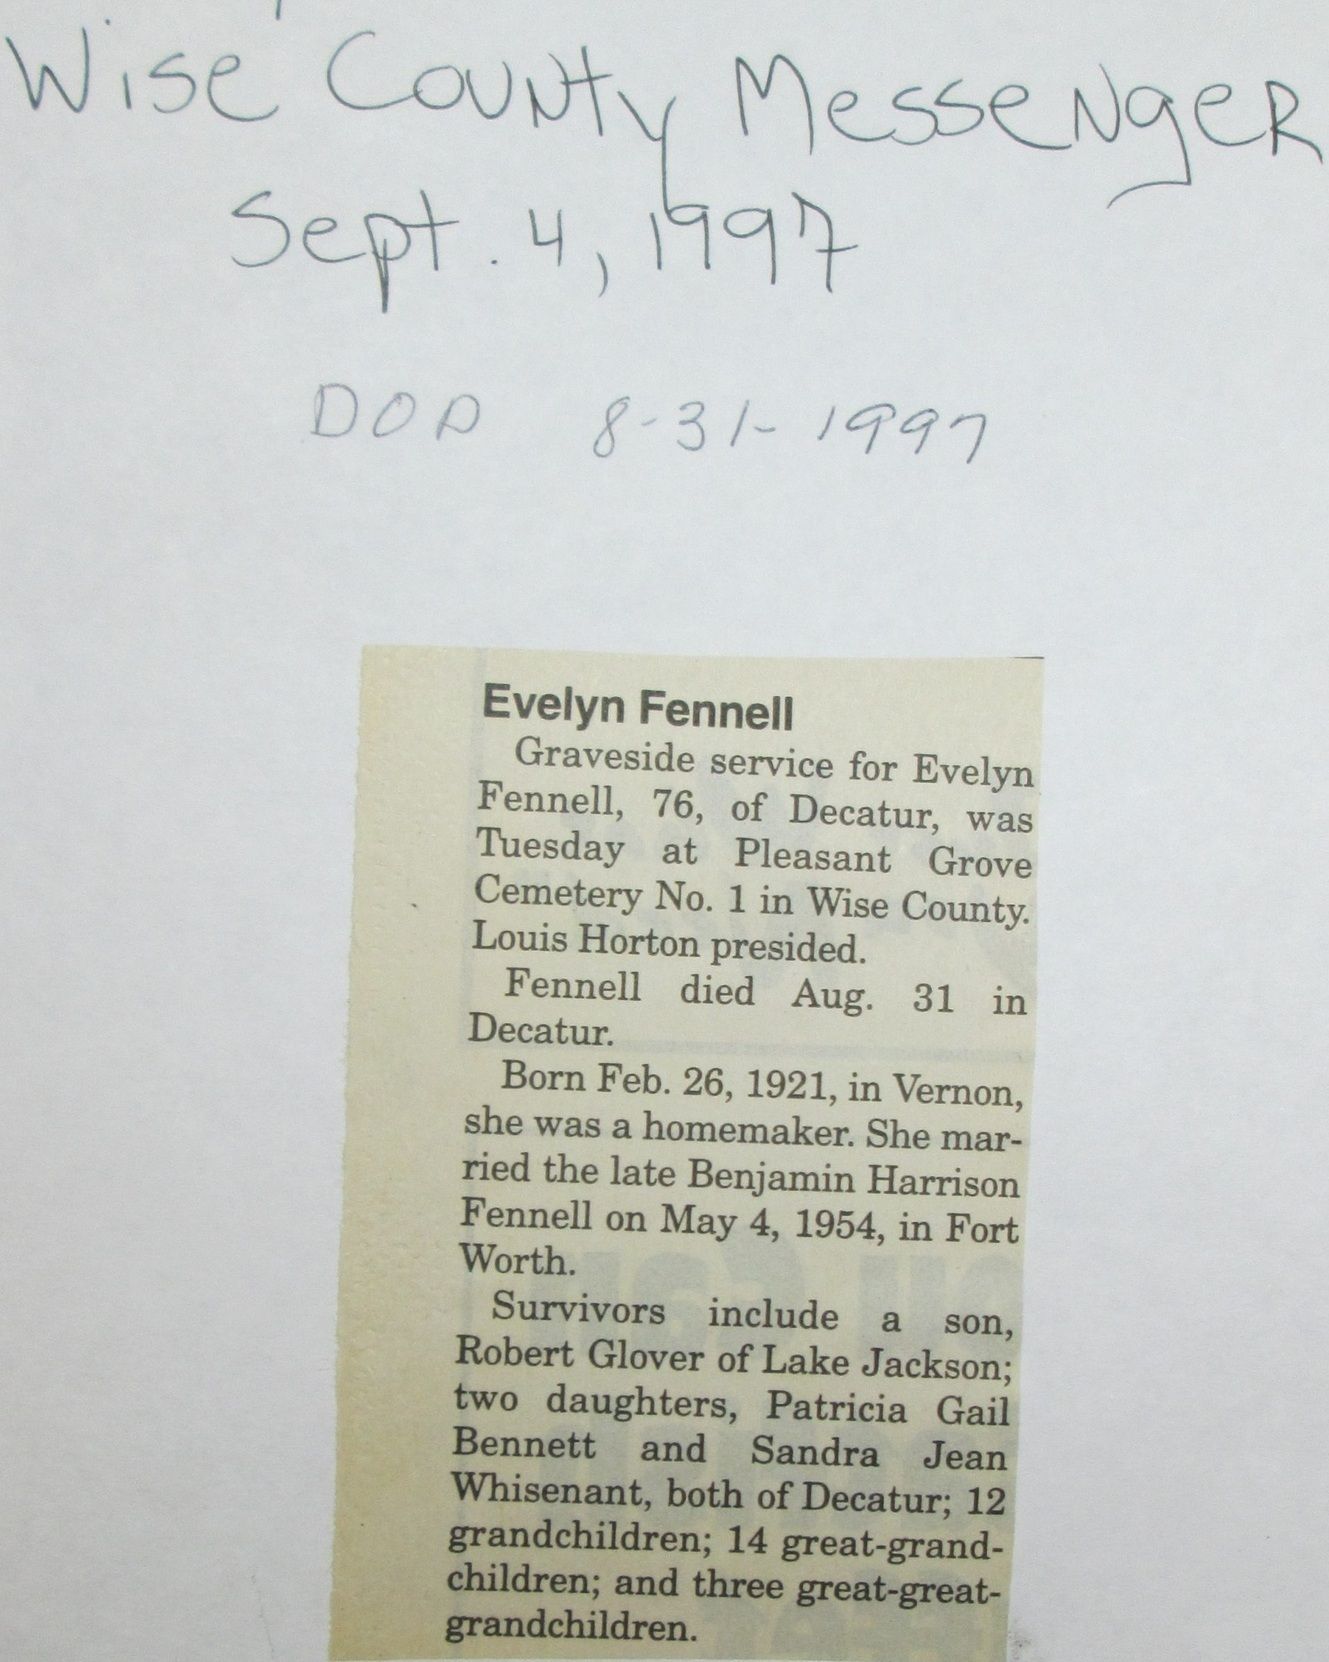 Wise County Messenger
Sept. 4, 1997
DOD 8-31-1997
Evelyn Fennell
Graveside service for Evelyn
Fennell, 76, of Decatur, was
Tuesday at Pleasant Grove
Cemetery No. 1 in Wise County.
Louis Horton presided.
Fennell died Aug. 31 in
Decatur.
Born Feb. 26, 1921, in Vernon,
she was a homemaker. She mar-
ried the late Benjamin Harrison
Fennell on May 4, 1954, in Fort
Worth.
Survivors include a son,
Robert Glover of Lake Jackson;
two daughters, Patricia Gail
Bennett and Sandra Jean
Whisenant, both of Decatur; 12
grandchildren; 14 great-grand-
children; and three great-great-
grandchildren.